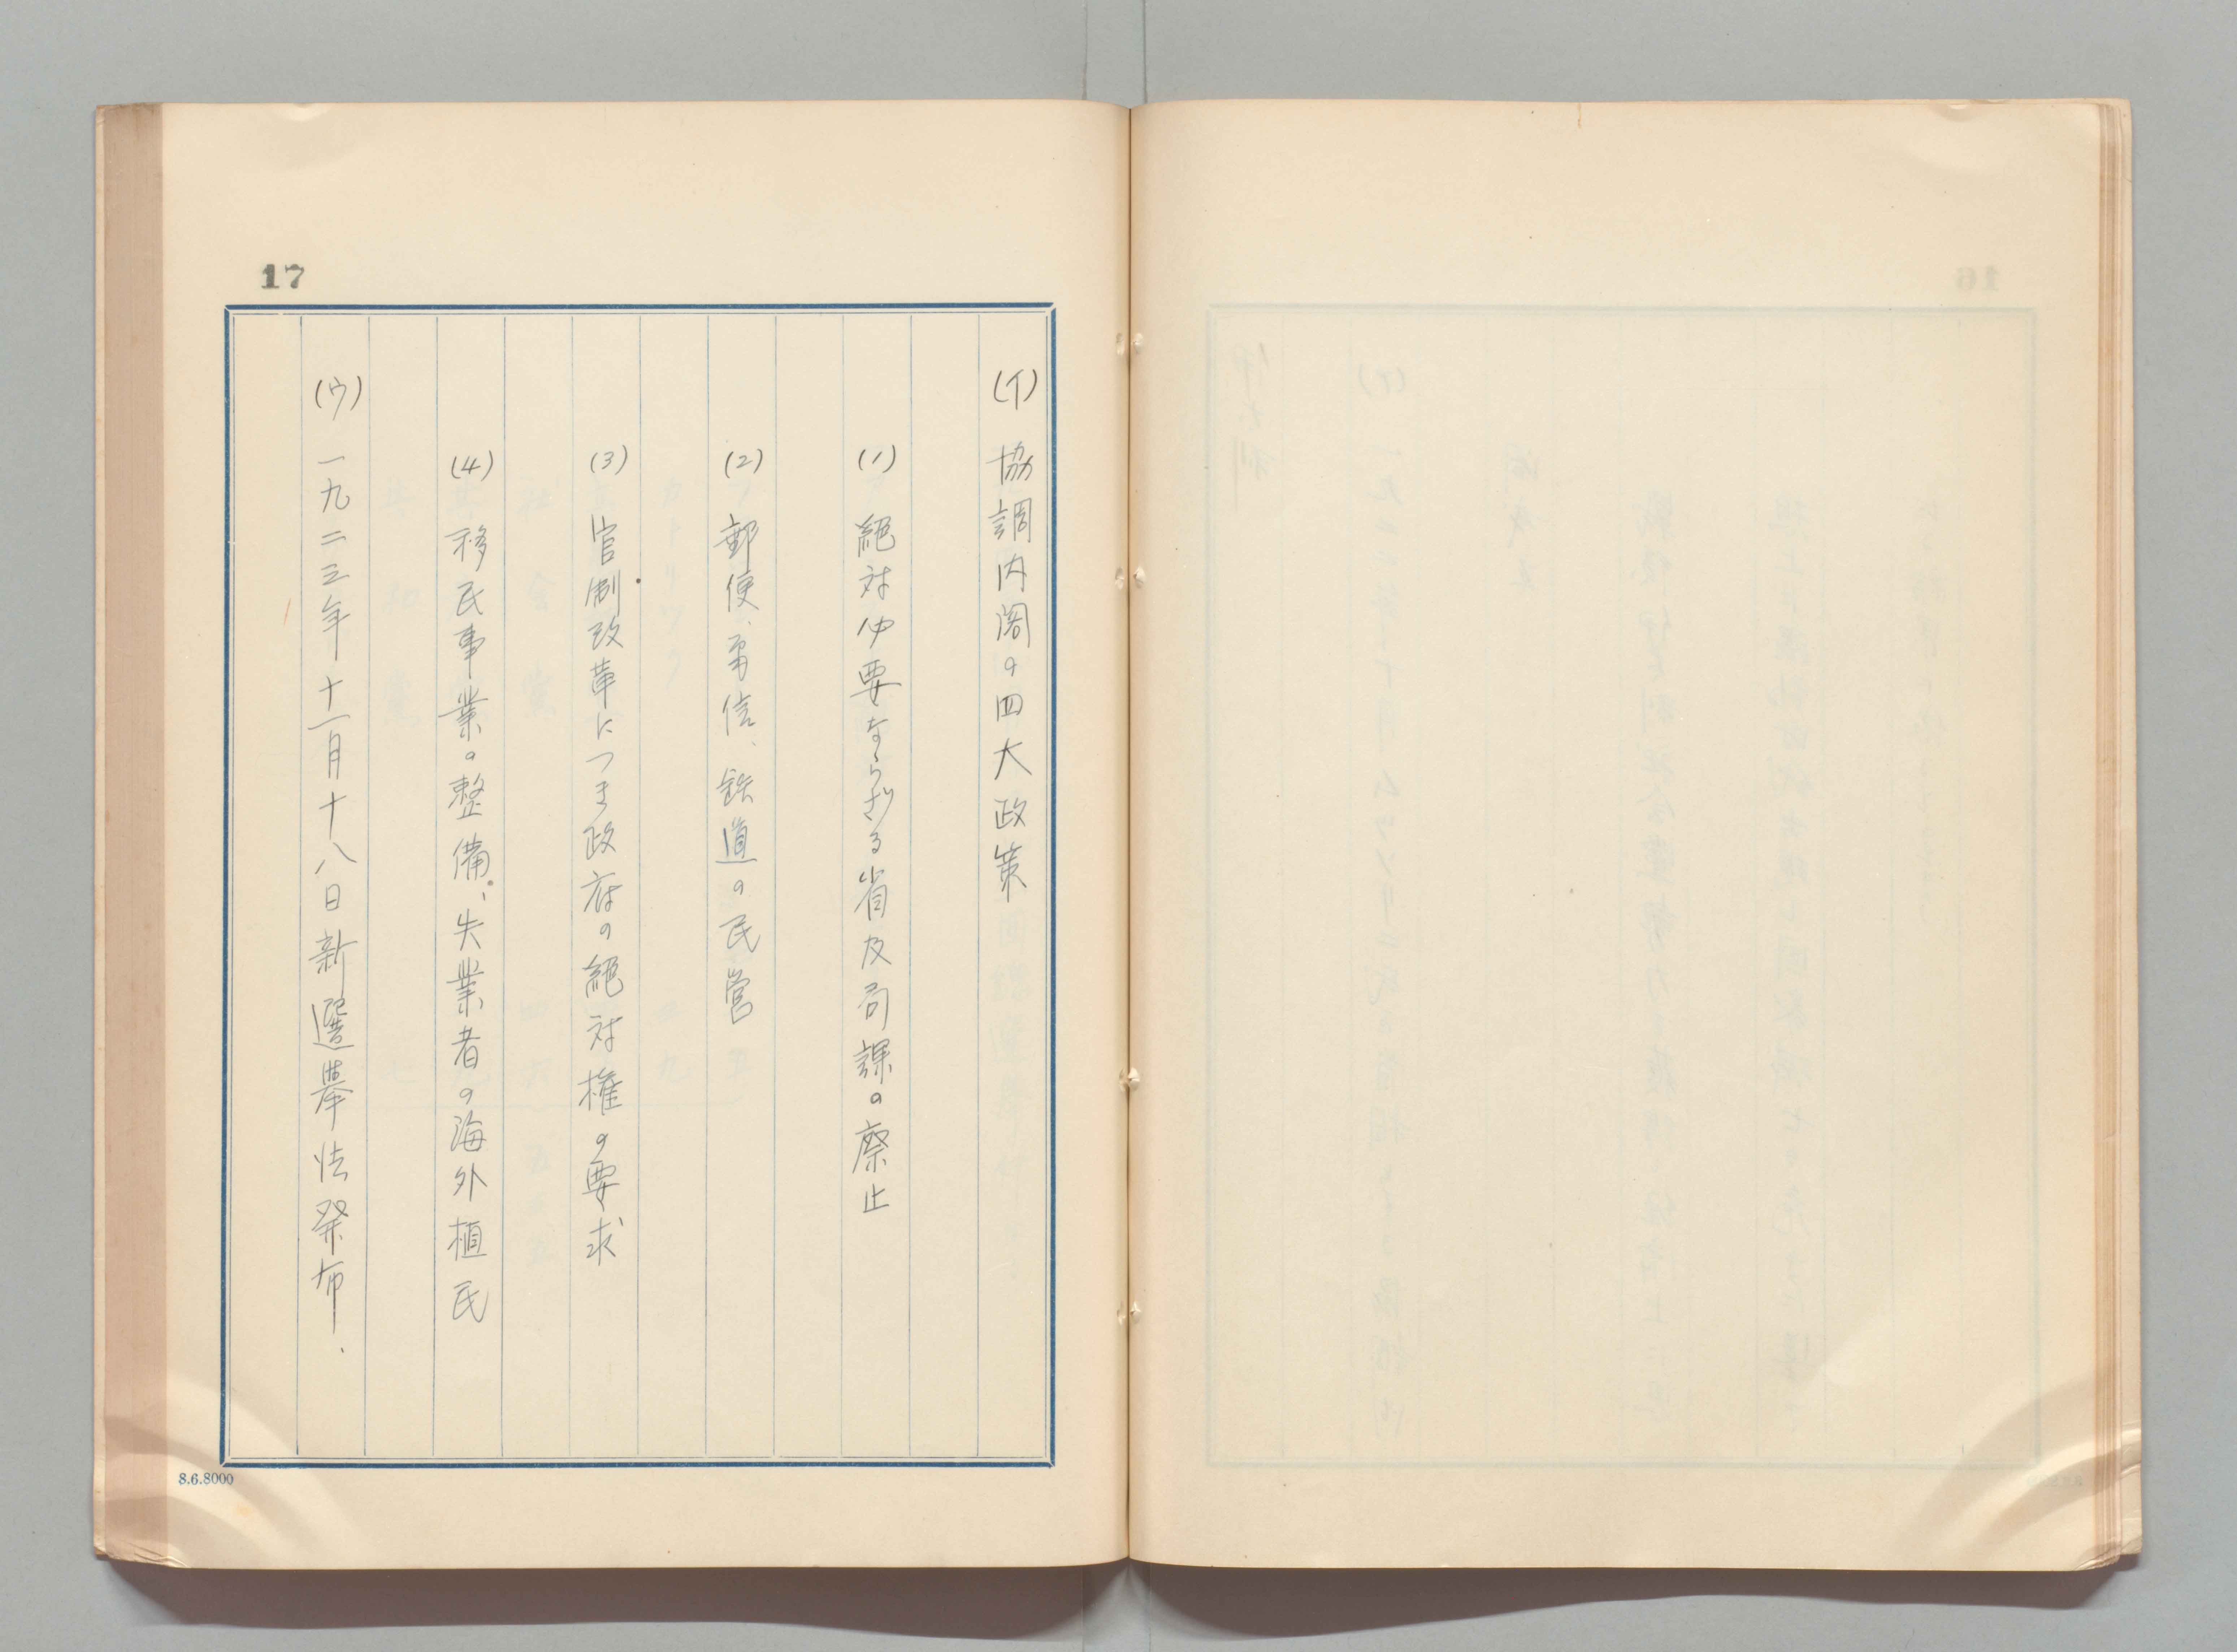 17
(イ) 協調内閣の四大政策
(1) 絶対必要ならざる省及局課の廃止
(2) 郵便、電信、鉄道の民営
(3) 官制改革につき政府の絶対権の要求
(4) 移民事業の整備、失業者の海外植民
(ウ) 一九二三年十一月十八日新選挙法発布.
8.6.8000